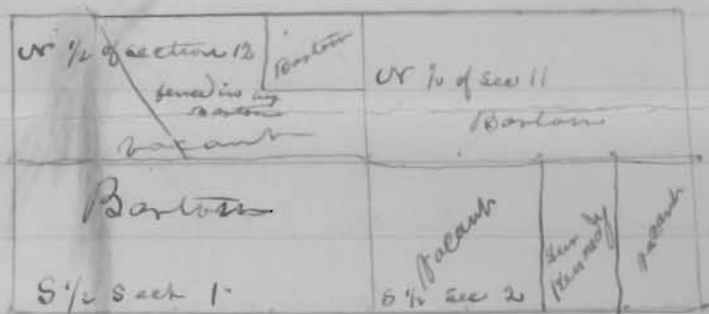 N 1/2 of section 12
Barton
fenced in by
Barton
vacant
N 1/2 of Sec 11
Barton
Barton
S 1/2 Sect 1
Vacant
S 1/2 Sec 2
Kennedy
vacant